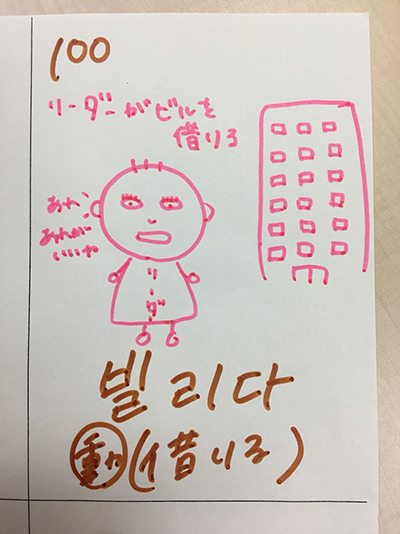 100
リーダーがビルを
借りる
あか、
あんが
いいや
リーダ
빌리다
動(借りる)